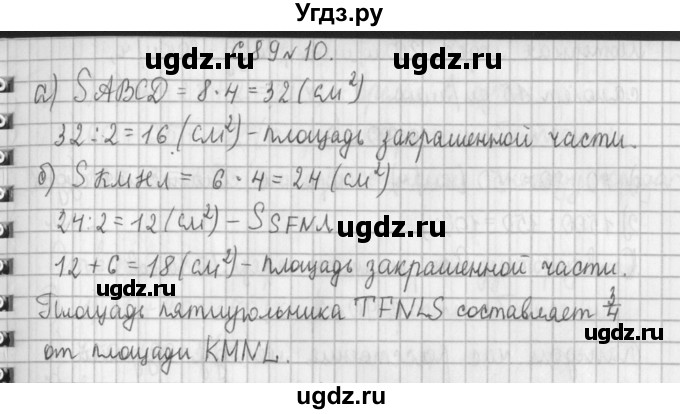 Угдз.ру
с. 89 № 10.
ugdz.ru ugdz.ru
а) SABCD = 8 · 4 = 32 (см²)
32 : 2 = 16 (см²) – площадь закрашенной части.
б) SКМНЛ = 6 · 4 = 24 (см²)
ugdz.ru ugdz.ru
24 : 2 = 12 (см²) – SSFNL
ugdz.ru
12 + 6 = 18 (см²) – площадь закрашенной части.
ugdz.ru
Площадь пятиугольника TFNLS составляет 3/4
ugdz.ru
от площади KMNL.
ugdz.ru ugdz.ru
ugdz.ru